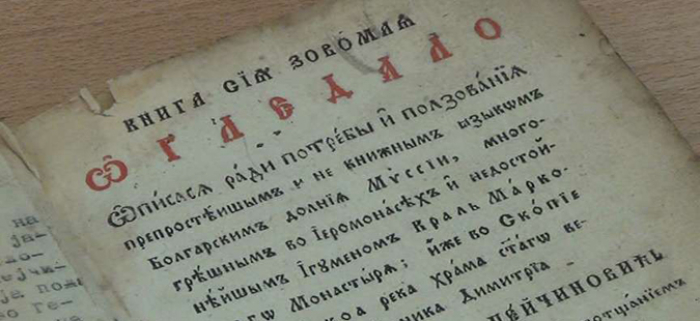 КНИГА СІѦ ЗОВОМАѦ
ѾГЛЕДАЛО
Ѿписасѧ ра́ди потре́бы и҆ ползова́нїѧ
препростѣишымъ и не книжнымъ ѧзыкѡмъ
Болгарскимъ долнїѧ Мѵссїи, много-
грѣшнымъ во Іеромонасѣхъ и҆ недостой-
нѣйшымъ Ігꙋменомъ Краль Марко-
Монастырѧ; и҆же во Ско́пїе
река храма ст҃агѡ ве-
ника Димитрїа
ПЕЙЧИНОВИЧЬ
на
ја-